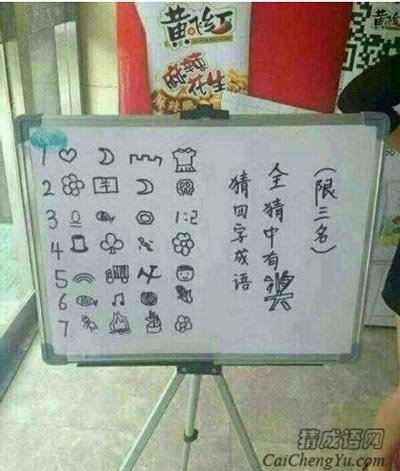 黄飞红
麻辣花生
麻辣脆
1
2
3
4
5
6
7
(限三名)
全猜中有奖
猜四字成语
猜成语网
CaiChengYu.com